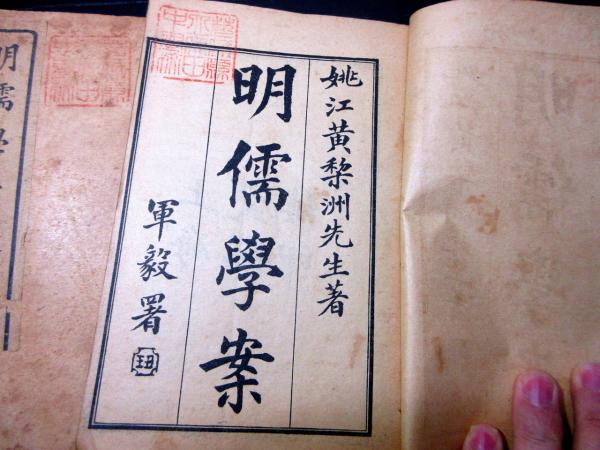 姚江黄棃洲先生著
明儒學案
軍毅署
明儒學